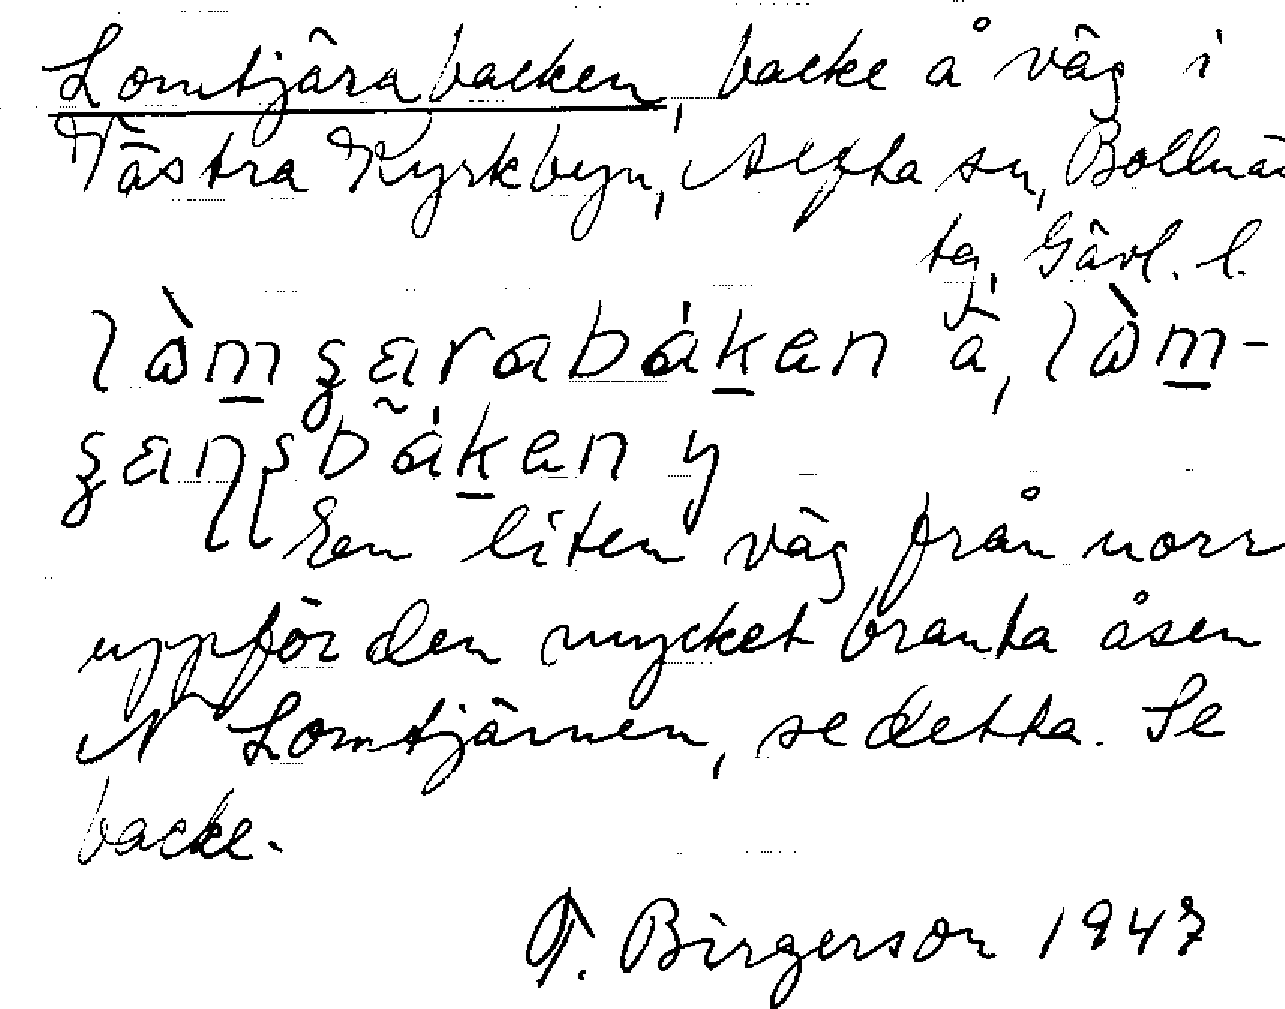 Lomtjärabacken, backe å väg i
Västra Kyrkbyn, Alfta sn, Bollnäs
tg, Gävl. l.
Een liten väg från norr
uppför den mycket branta åsen
N Lomtjärnen, se detta. Se
backe.
T. Birgerson 1947